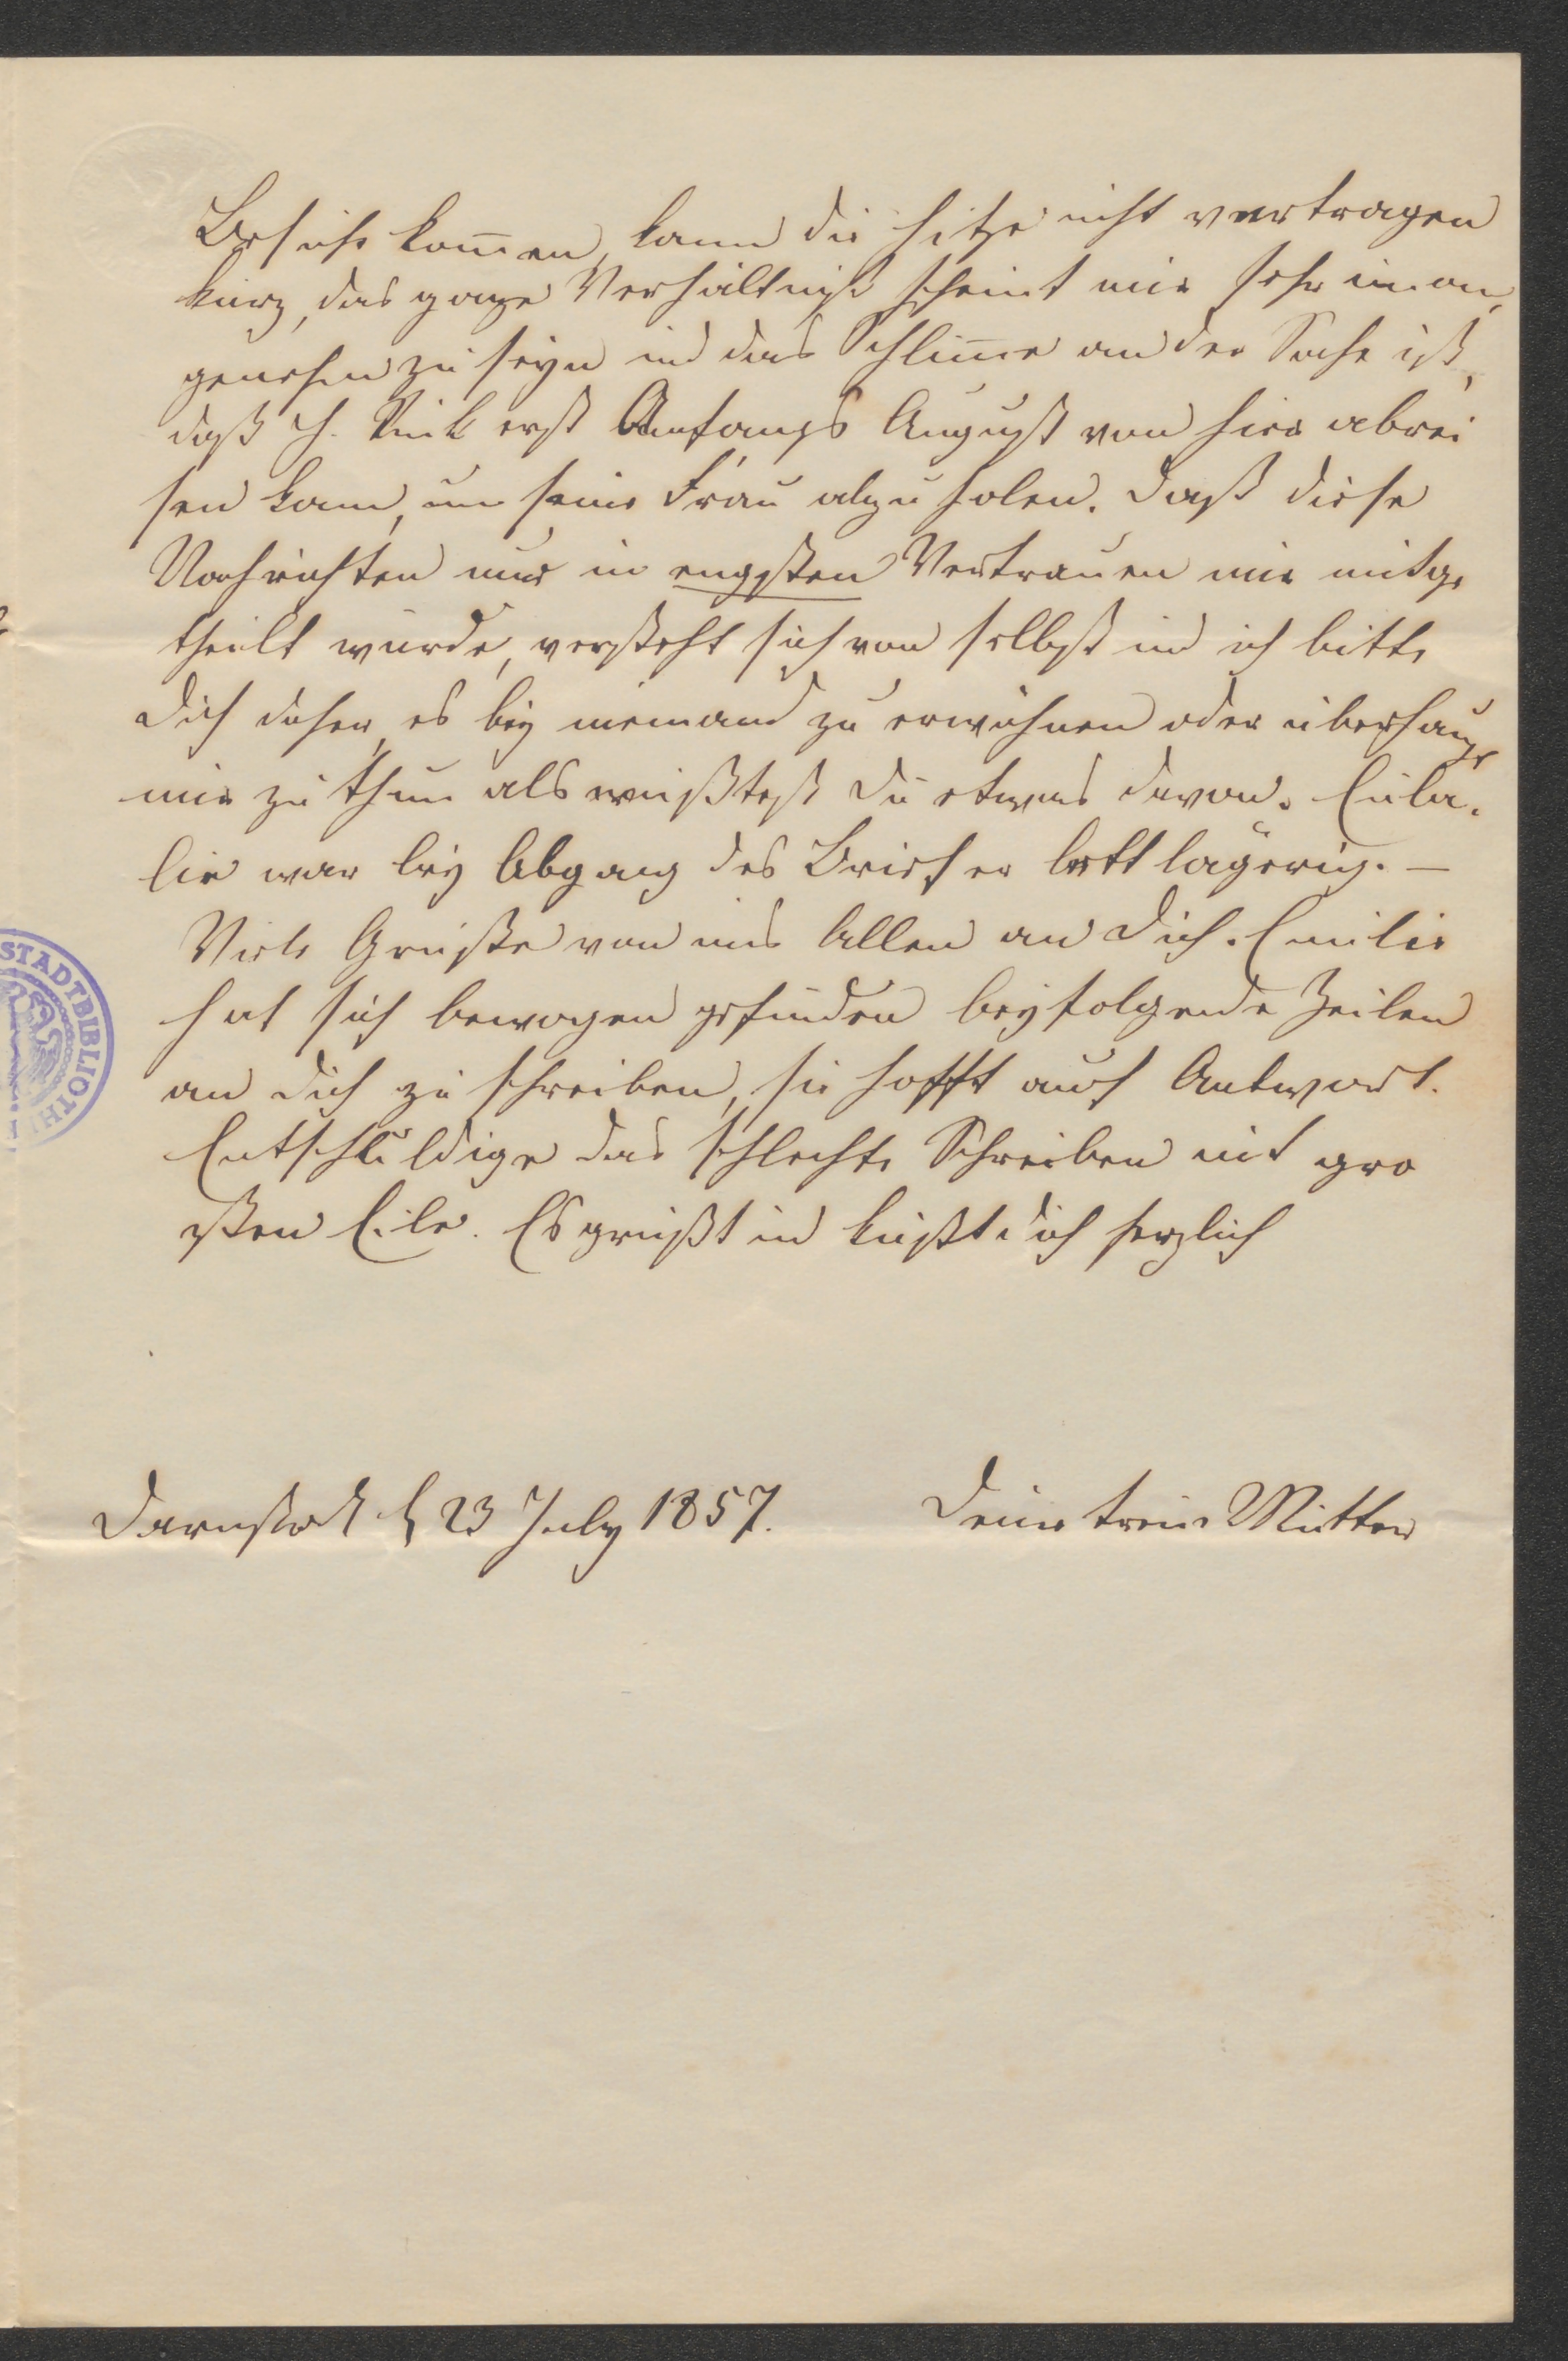 Besuche kom̄en, kann die Hitze nicht vertragen
kurz, das ganze Verhältniß scheint mir sehr unan,
genehm zu seyn und das Schlim̄e an der Sache ist,
daß H. Rink erst Anfangs August von hier abrei
sen kann, um seine Frau abzuholen. Daß diese
Nachrichten nur im engsten Vertrauen mir mitge
theilt wurde, versteht sich von selbst und ich bitte
Dich daher, es bey niemand zu erwähnen oder überhaupt
nie zu thun als wüßtest Du etwas davon. Eula.
lie war bey Abgang des Briefes bettlägerig. —
Viele Grüße von uns Allen an Dich. Emilie
hat sich bewogen gefunden beyfolgende Zeilen
an Dich zu schreiben, sie hofft auf Antwort.
Entschuldige das schlechte Schreiben mit gro
ßen Eile. Es grüßt und küßt Dich herzlich
Darmstadt d 23 July 1857. Deine treue Mutter
STADTBIBLIOTH